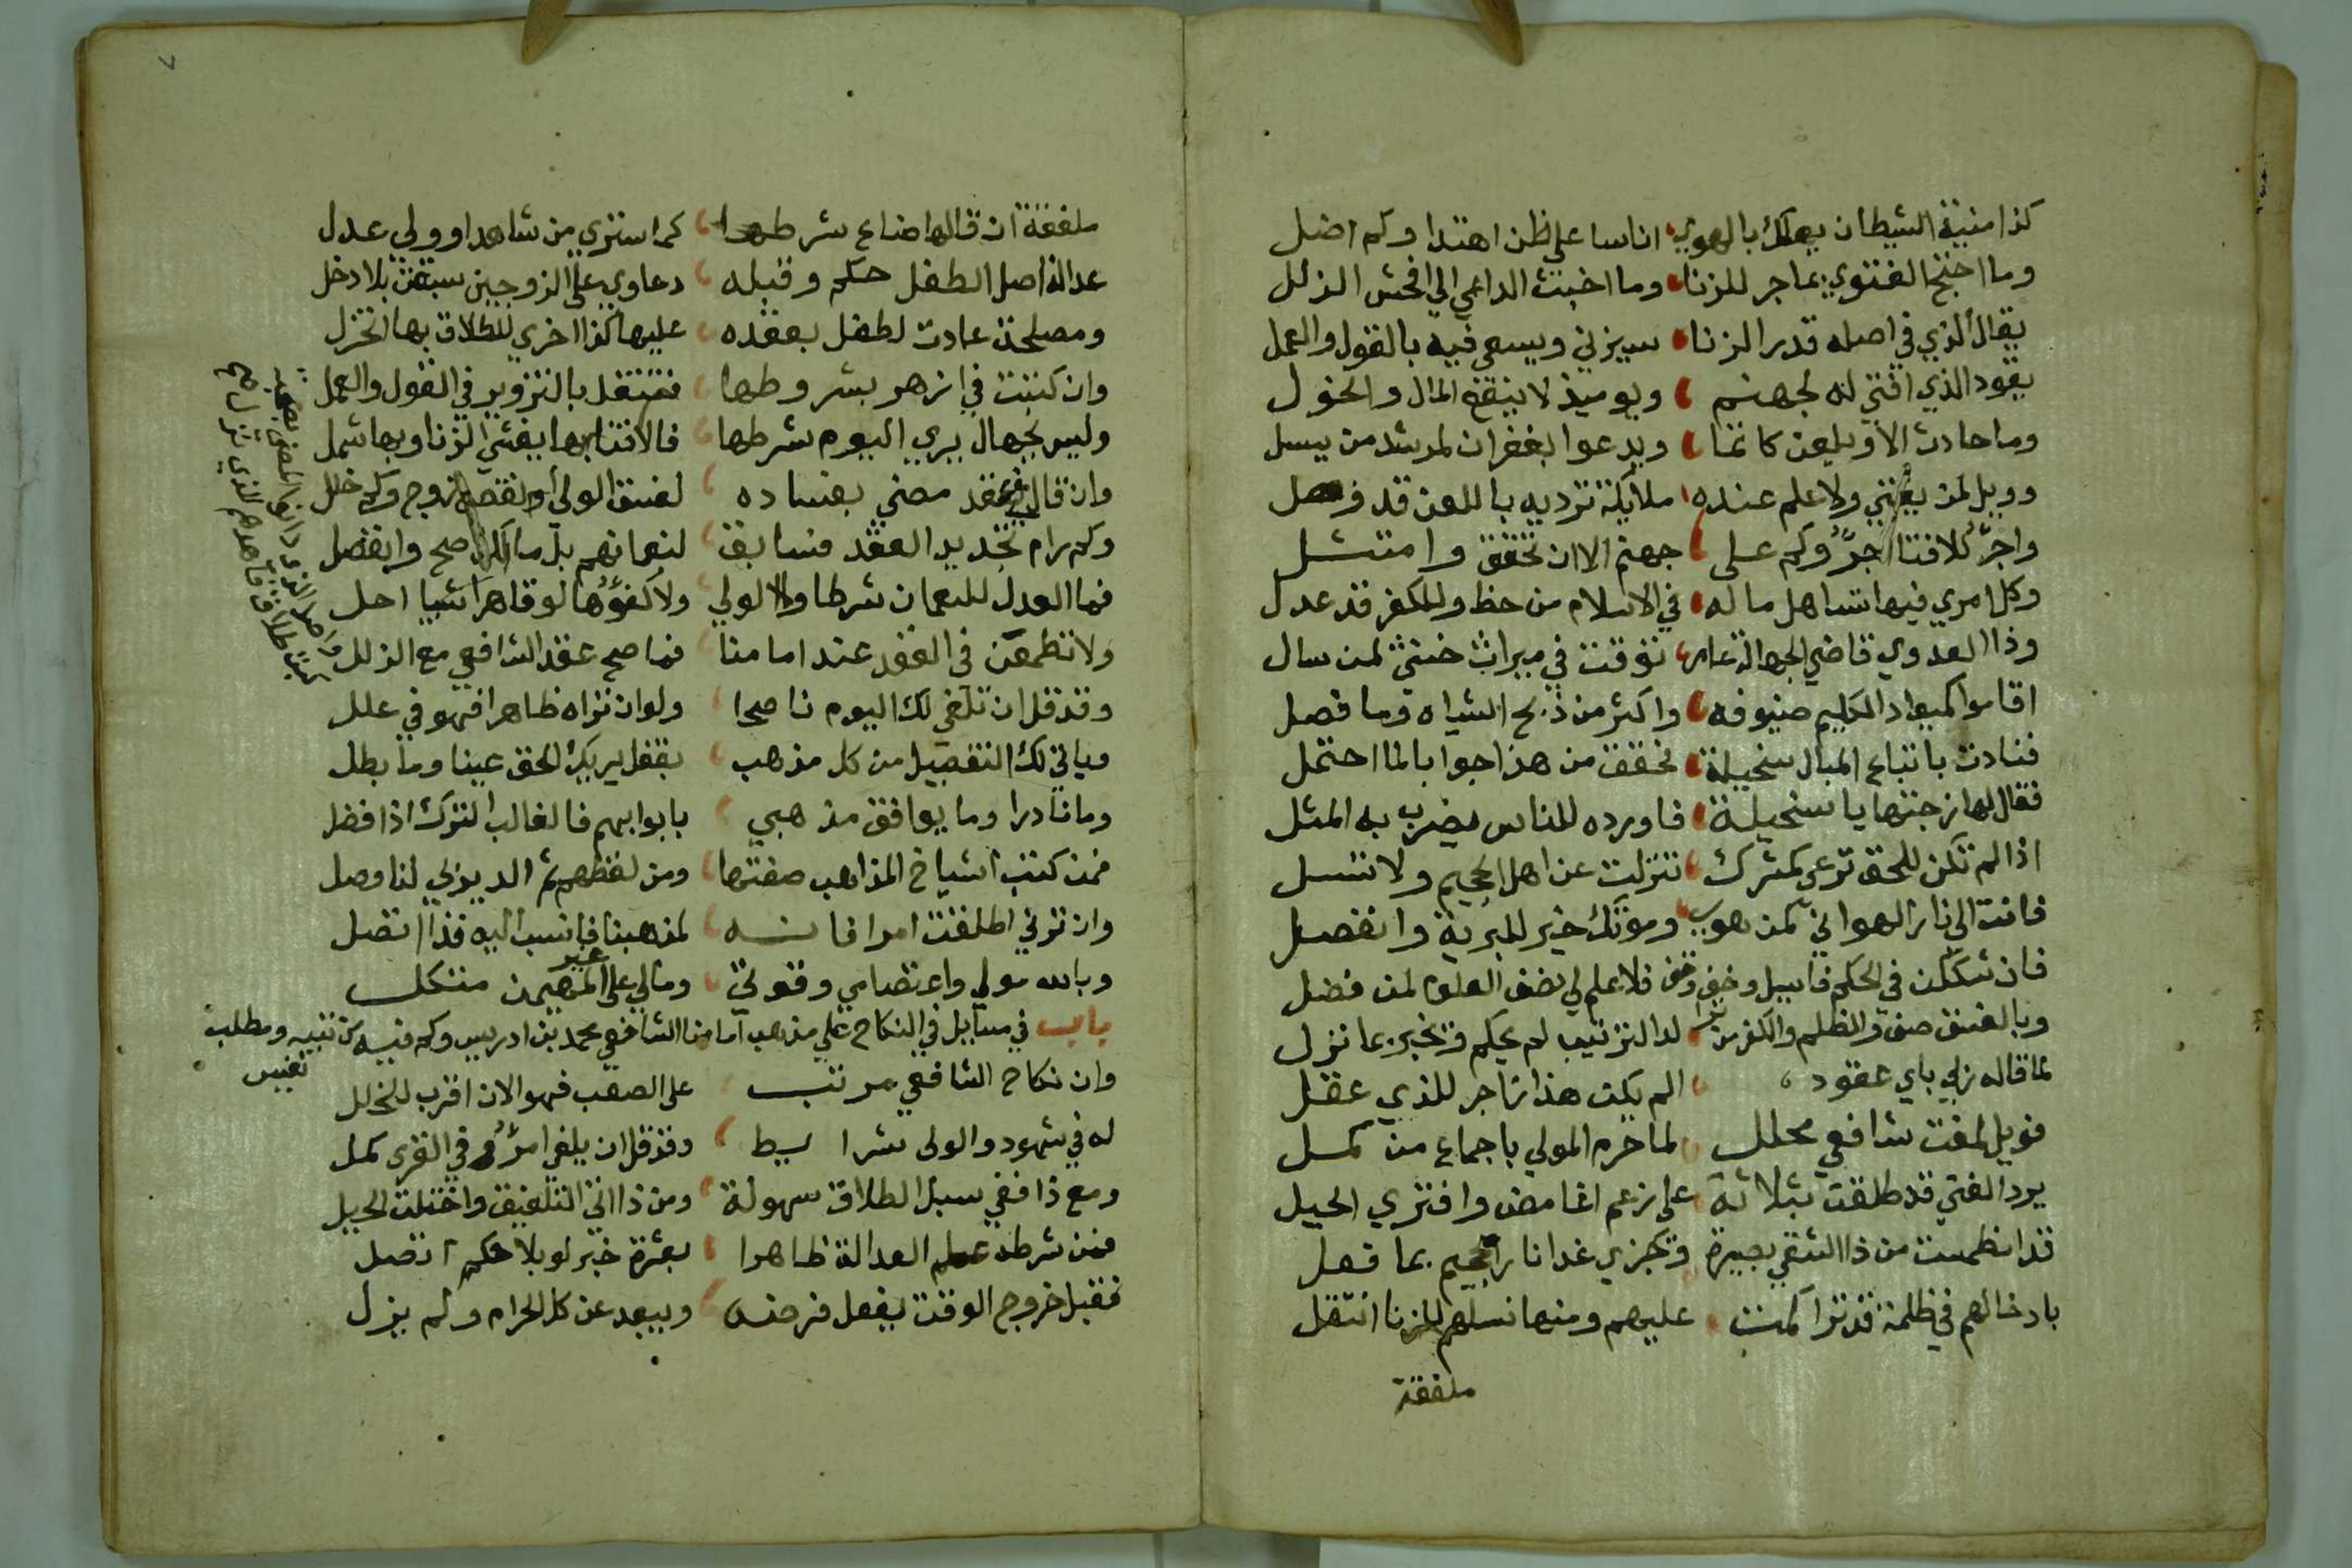 كذا منية الشيطان يهلك بالهوي اناسا علي ظن اهتدا وكم اضل
وما اقبح الفتوي بما جر للزنا وما اخبث الداعي الي افحش الزلل
يقال الذي في اصله قدر الزنا سيزني ويسعي فيه بالقول والعمل
يقود الذي افتي له لجهنم ويوميذ لا ينفع المال والخول
وما حادث الا ويلعن كاتما ويدعوا بغفران لمرشد من يسل
وويل لمن يفتي ولا علم عنده ملايكة ترديه باللعن قد
واجرؤكم للافتا اجرؤكم علي جهنم الا ان تحقق وامتثل
وكل امري فيها تساهل ما له في الاسلام من حظ وللكفر قد عدل
وذا العدوي قاضي الجهالة عامر توقفت في ميراث خنثي لمن سال
اقاموا كميعاد الكليم ضيوفه واكثر من ذبح الشياه وما فصل
فنادت باتباع المبال سخيلة فحقق من هذا جوابا لما احتمل
فقال لها فرجتها يا سخيلة فاورده للناس يضرب به المثل
اذا لم تكن للحق ترعي كمشرك تنزلت عن اهل الجحيم ولا تسل
فانت الي نار الهوا ني كمن هوي وموتك خير للبرية وانفصل
فان شككن في الحكم فاسيل وخف وقف فلا علم لي نصف العلوم لمن فضل
وبالفسق صف والظلم والكفر من لدا الترتيب لم يحكم وتخبر بما نزل
لما قاله ربي باي عقود الم يكن هذا زاجر للذي عقل
فويل لمفت شافعي محلل لما حرم المولي باجماع من كمل
يرد الفتي قد طلقت بثلاثة علي زعم اغامض وافتري الحيل
قد انطمست من ذا الشقي بصيرة وتجزي غدا نار الجحيم بما فعل
بادخالهم في ظلمة قد تراكمت عليهم ومنها نسلهم للزنا انتقل
ملفقة
٧
ملفقة ان قالها ضاع شرطها كما ستري من شاهد او ولي عدل
عدالة اصل الطفل حكم وقبله دعاوي علي الزوجين سبقن بلا دخل
ومصلحة عادت لطفل بعقده عليها كذا اخري للطلاق بها انخزل
وان كتبت في ازهر بشروطها فتنقل بالتزوير في القول والعمل
وليس بجهال يري اليوم شرطها فالافتا بها يفشي الزنا وبها شمل
وان قال في عقد مضي بفساده لفسق الولي او نقص الزوج وكل خلل
وكم رام تجديد العقد فسابق لنعمانهم بل مالك صح وانفصل
فما العدل للنعمان شرطا ولا الولي ولا كفؤها لو قاهرا شيبا احل
ولا تطمعن في العقد عند امامنا فما صح عقد الشافعي مع الزلل
وقد قل ان تلقي لك اليوم ناصحا ولو ان تراه ظاهرا فهو في علل
وياتي لك التفصيل من كل مذهب بقفل يريك الحق عينا وما بطل
وما نادرا وما يوافق مذهبي بابوابهم فالغالب الترك اذ افضل
فمن كتب اشياخ المذاهب صفتها ومن لفظهم ثم الديوني لنا وصل
وان ترني اطلقت امرا فانه لمذهبنا فانسب اليه فذا اتصل
وبالله مولي واعتصامي وقوتي ومالي علي غير المهيمن متكل
باب في مسايل في النكاح علي مذهب امامنا الشافعي محمد بن ادريس وكم فيه من تنبيه ومطلب نفيس
وان نكاح الشافعي مرتب علي الصعب فهو الان اقرب للخلل
له في شهود والولي شرايط وقد قل ان يلفي امرؤ في القري كمل
ومع ذا ففي سبل الطلاق سهولة ومن ذا اتي التلفيق واختلت الحيل
فمن شرطه علم العدالة ظاهرا بعشرة خبر لو بلا حكم اتصل
فقبل خروج الوقت يفعل فرضه ويبعد عن كل الحرام ولم يزل